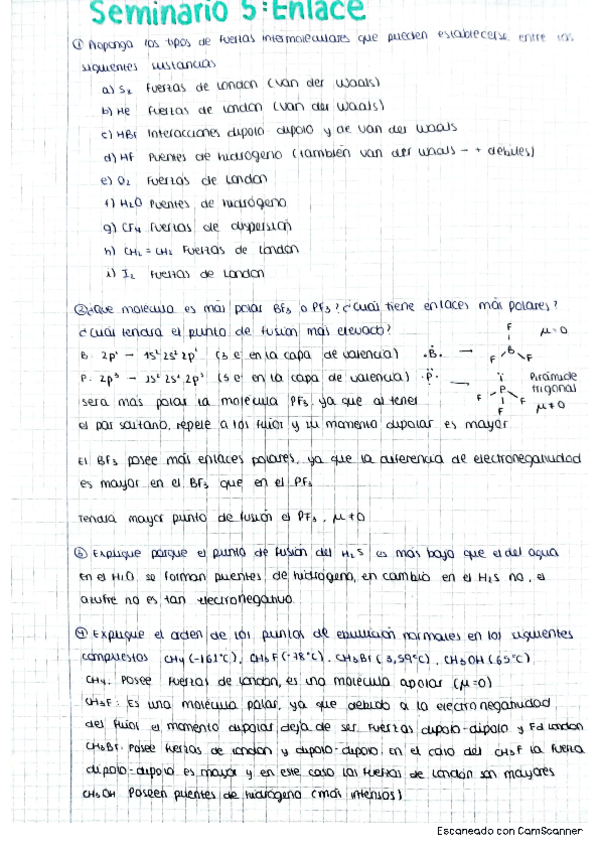 Seminario 5: Enlace
① Proponga los tipos de fuerzas intermoleculares que pueden establecerse entre las
siguientes sustancias
a) S₂ Fuerzas de London (van der Waals)
b) He Fuerzas de London (van der Waals)
c) HBr Interacciones dipolo dipolo y de van der Waals
d) HF Puentes de hidrógeno (también van der Waals → + débiles)
e) O₂ Fuerzas de London
f) H₂O Puentes de hidrógeno
g) CF₄ Fuerzas de dispersión
h) CH₂ = CH₂ Fuerzas de London
i) I₂ Fuerzas de London
② ¿Que molécula es más polar BF₃ o PF₃? ¿Cuál tiene enlaces más polares?
¿Cuál tendrá el punto de fusión más elevado?
B: 2p¹ → 1s² 2s² 2p¹ (3 e⁻ en la capa de valencia) .Ḃ. → F B F F μ=0
P: 2p³ → 1s² 2s² 2p³ (5 e⁻ en la capa de valencia) .P̈. → F P F F Pirámide trigonal μ≠0
será más polar la molécula PF₃, ya que al tener
el par solitario, repele a los fluor y su momento dipolar es mayor
El BF₃ posee más enlaces polares, ya que la diferencia de electronegatividad
es mayor en el BF₃ que en el PF₃
Tendrá mayor punto de fusión el PF₃, μ≠0
Explique porque el punto de fusión del H₂S es más bajo que el del agua
en el H₂O se forman puentes de hidrógeno, en cambio en el H₂S no, el
azufre no es tan electronegativo.
④ Explique el orden de los puntos de ebullición normales en los siguientes
compuestos CH₄ (-161°C), CH₃F (-78°C), CH₃Br (3,59°C), CH₃OH (65°C)
CH₄: Posee fuerzas de London, es una molécula apolar (μ=0)
CH₃F: Es una molécula polar, ya que debido a la electronegatividad
del fluor el momento dipolar deja de ser Fuerzas dipolo-dipolo y Fd London
CH₃Br: Posee fuerzas de London y dipolo-dipolo. en el caso del CH₃F la fuerza
dipolo-dipolo es mayor y en este caso las fuerzas de London son mayores
CH₃OH Poseen puentes de hidrógeno (más intensos)
Escaneado con CamScanner